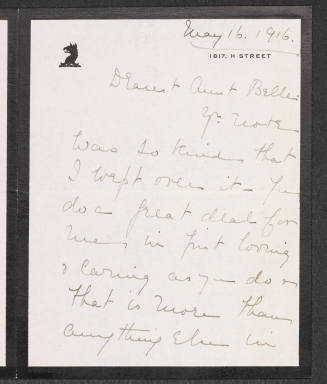 May 16. 1916.
1817, H STREET
Dearest Aunt Belle:
Yr. note
was so kind that
I wept over it - You
do a great deal for
me in just loving
& caring as you do &
that is more than
anything else in